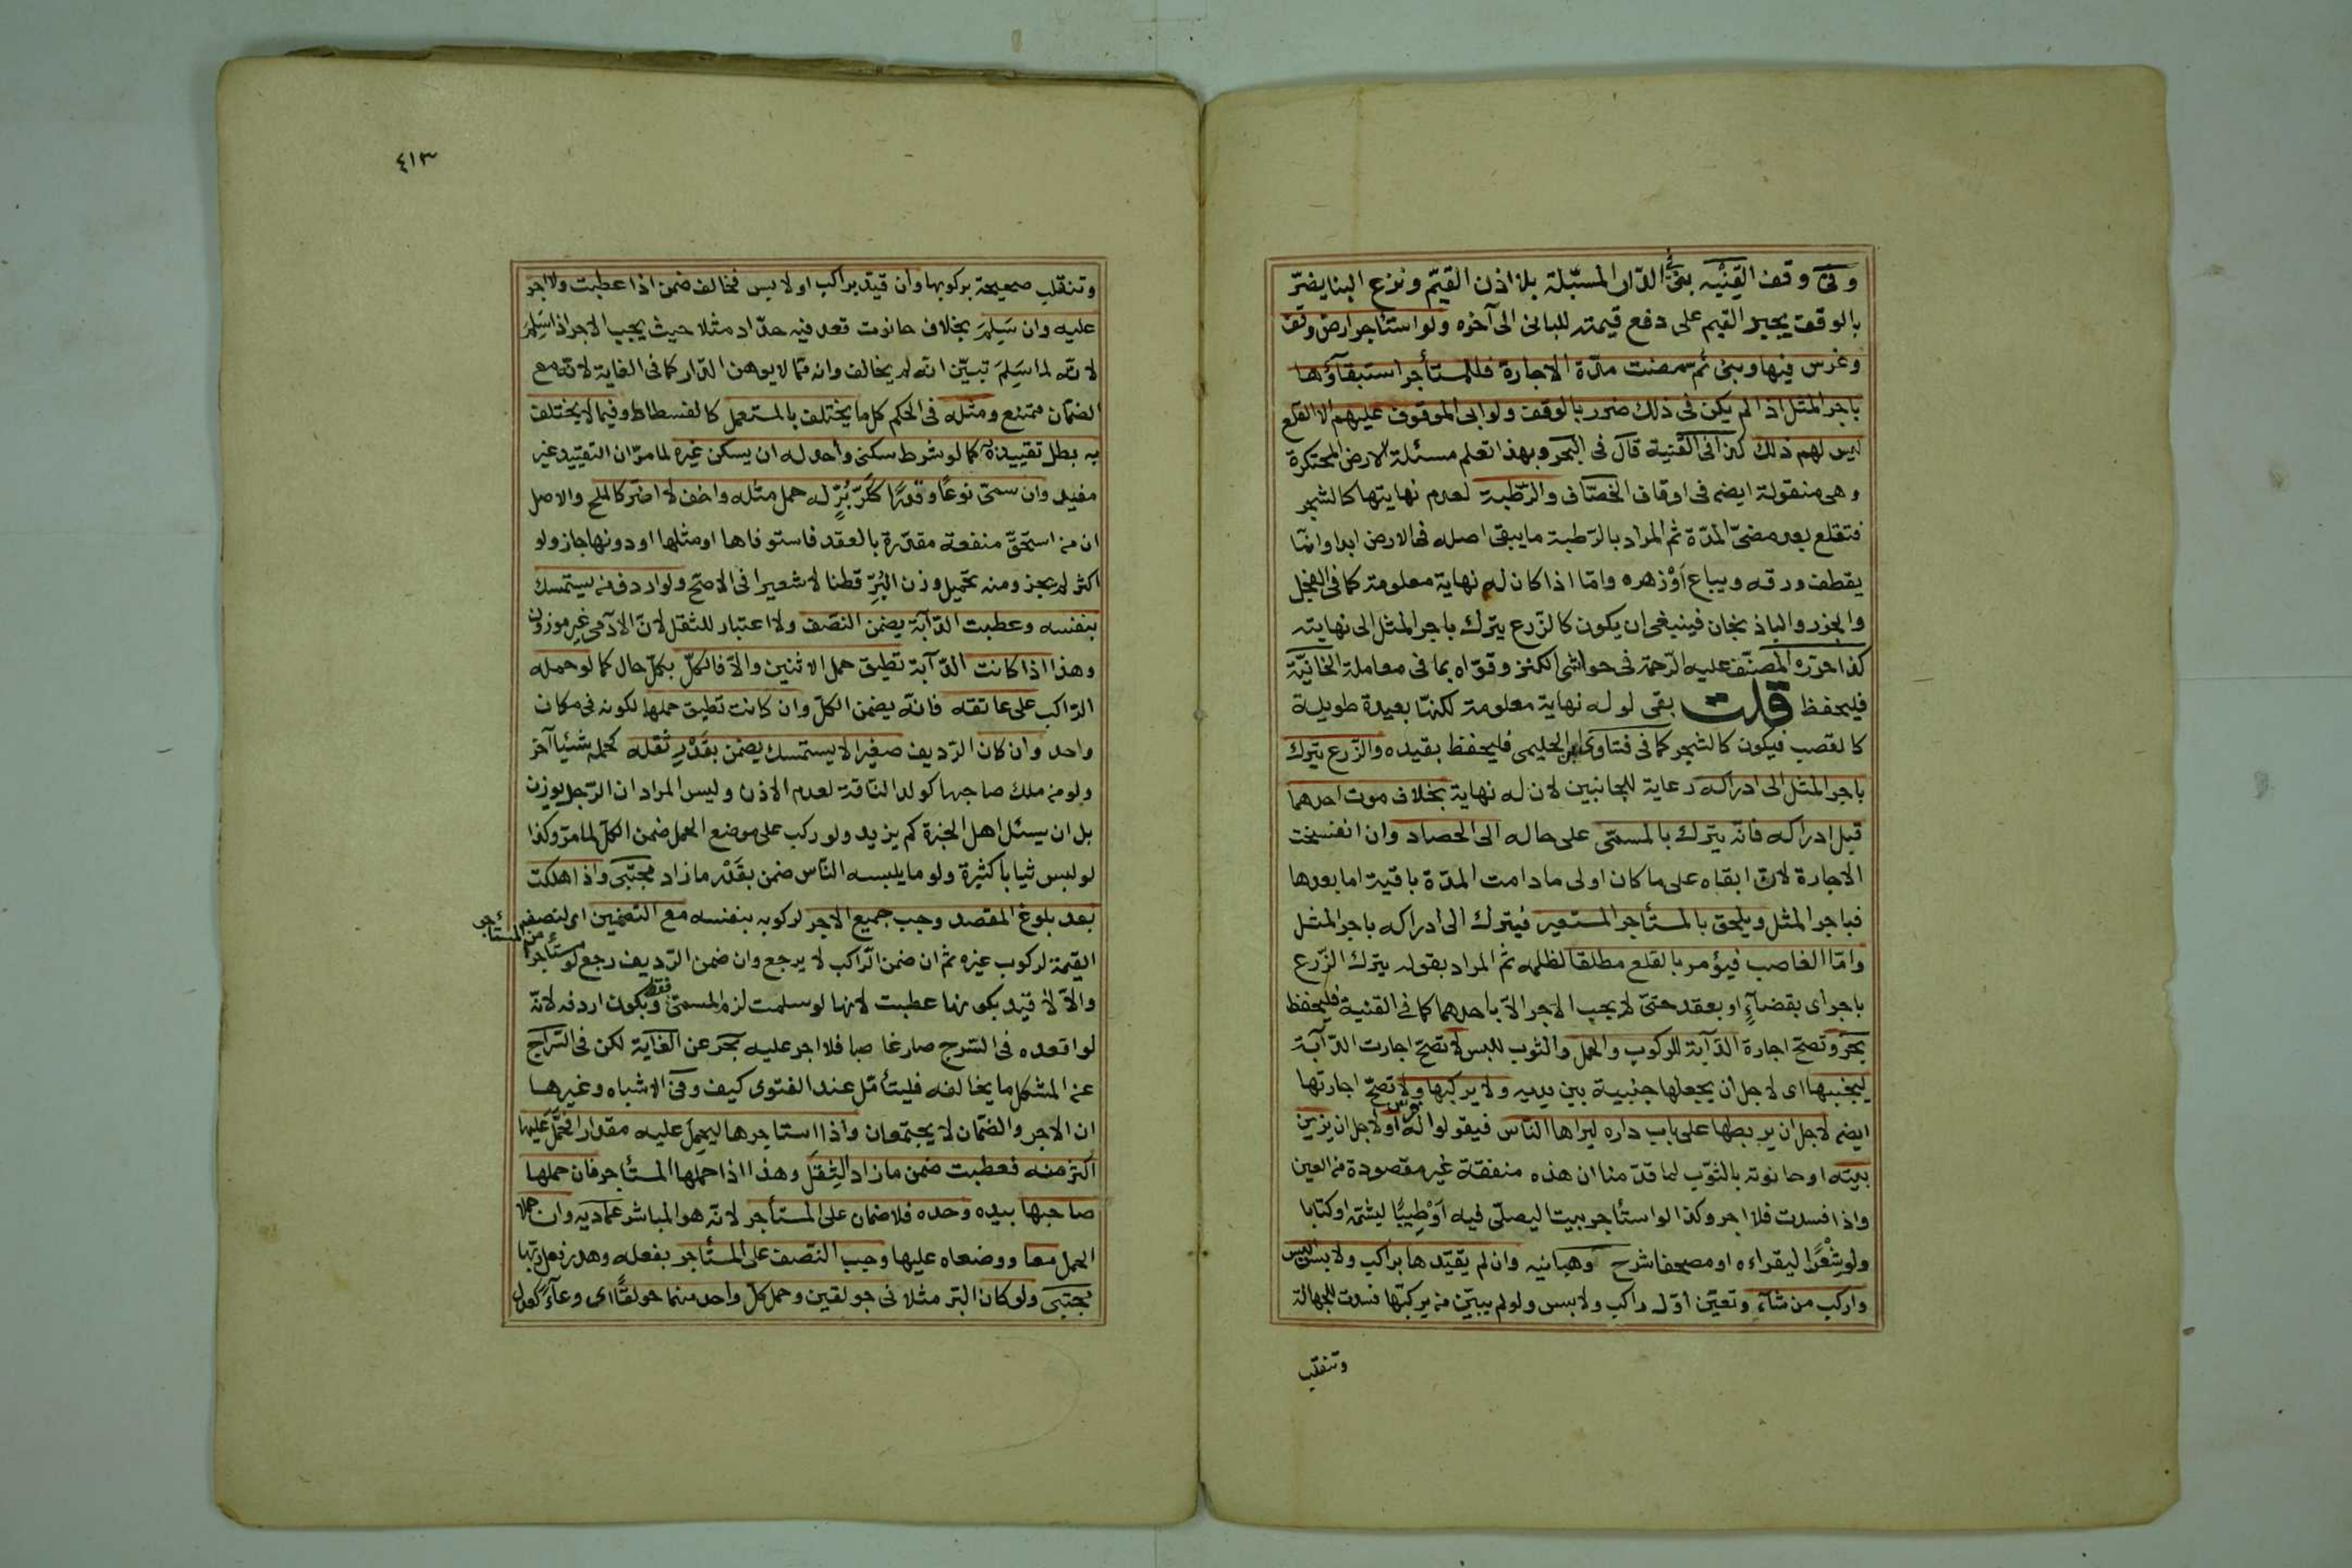 وفى وقف القنيه بنى فى الدار المسبّلة بلا اذن القيّم ونزع البنا يضرّ
بالوقف يجبر القيم على دفع قيمته للبانى الى آخره ولو استأجر ارض وقف
وغرس فيها وبنى ثم مضت مدّة الاجارة فللمستأجر استبقآؤها
باجر المثل اذا لم يكن فى ذلك ضرر بالوقف ولو ابى الموقوف عليهم الا القلع
ليس لهم ذلك كذا فى القنية قال فى البحر وبهذا تعلم مسئلة الارض المحتكرة
وهى منقولة ايضا فى اوقاف الخصّاف والرّطبة لعدم نهايتها كالشجر
فتقلع بعد مضىّ المدّة ثم المراد بالرّطبة ما يبقى اصله فى الارض ابدا وانما
يقطف ورقه ويباع اَوْ زهره وامّا اذا كان له نهاية معلومة كما فى الفجل
والجزر والباذنجان فينبغى ان يكون كالزّرع يترك باجر المثل الى نهايته
كذا حرّره المصنّف عليه الرّحمة فى حواشى الكنز وقوّاه بما فى معاملة الخانيّة
فليحفظ قلت بقى لو له نهاية معلومة لكنّها بعيدة طويلة
كالقصب فيكون كالشجر كما فى فتاوى ابن الجليمى فليحفظ بقيده والزّرع يترك
باجر المثل الى ادراكه رعاية للجانبين لان له نهاية بخلاف موت احدهما
قبل ادراكه فانّه يترك بالمسمّى على حاله الى الحصاد وان انفسخت
الاجارة لانّ ابقاه على ما كان اولى ما دامت المدّة باقية اما بعدها
فباجر المثل ويلحق بالمستأجر المستعير فيترك الى ادراكه باجر المثل
وامّا الغاصب فيؤمر بالقلع مطلقا لظلمه ثم المراد بقوله يترك الزّرع
باجر اى بقضآءٍ او بعقد حتىّ لا يجب الاجر الاّ باحدهما كما فى القنية فليحفظ
بحر وتصحّ اجارة الدّآبة للركوب والحمل والثوب للبس لا تصحّ اجارت الدّآبة
ليجنبها اى لاجل ان يجعلها جنيبة بين يديه ولا يركبها ولا تصحّ اجارتها
ايضا لاجل ان يربطها على باب داره ليراها النّاس فيقولوا له فرس او لاجل ان يزين
بيته او حانوته بالثوب لما قدّمنا ان هذه منفقة غير مقصودة من العين
واذا فسدت فلا اجر وكذا لو استأجر بيتا ليصلّى فيه اَوْ طِيبًا ليشمّه او كتابا
ولو شِعْرًا ليقراءه او مصحفا شرح وهبانيه وان لم يقيّدها براكب ولابس البس
واركب من شآء وتعيّن اوّل راكب ولابس ولو لم يبيّن من يركبها فسدت للجهالة
وتنقلب
٤١٣
وتنقلب صحيحة بركوبها وان قيّد براكب او لابس فخالف ضمن اذا عطبت ولا اجر
عليه وان سَلِمَ بخلاف حانوت قعد فيه حدّاد مثلا حيث يجب الاجر اذا سَلِمَ
لانّه لما سَلِمَ تبيّن انّه لم يخالف وانه ممّا لا يوهن الدّار كما فى الغاية لانّه مع
الضمان ممتنع ومثله فى الحكم كل ما يختلف بالمستعمل كالفسطاط وفيما لا يختلف
به بطل تقييده كما لو شرط سكنى واحد له ان يسكن غيره لما مرّ ان التقييد غير
مفيد وان سمى نوعًا وقدرًا ككرّ بُرٍّ له حمل مثله واخف لا اضرّ كالملح والاصل
ان من استحقّ منفعة مقدّرة بالعقد فاستوفاها او مثلها او دونها جاز ولو
اكثر لم يجز ومنه تحميل وزن البُرِّ قطنا لا شعيرا فى الاصحّ ولو اردف من يستمسك
بنفسه وعطبت الدّآبة يضمن النصّف ولا اعتبار للثقل لانّ الآدمى غير موزون
وهذا اذا كانت الدّآبة تطيق حمل الاثنين والاّ فالكلّ بكلّ حال كما لو حمله
الرّاكب على عاتقه فانّه يضمن الكلّ وان كانت تطيق حملها لكونه فى مكان
واحد وان كان الرّديف صغيرا لا يستمسك يضمن بقَدْرِ ثقله كحمله شيئا آخر
ولو من ملك صاحبها كولد النّاقة لعدم الاذن وليس المراد ان الرّجل يوزن
بل ان يسئل اهل الخبرة كم يزيد ولو ركب على موضع الحمل ضمن الكلّ لما مرّ وكذا
لو لبس ثيابا كثيرة ولو ما يلبسه النّاس ضمن بقَدْر ما زاد مجتبى واذا هلكت
بعد بلوغ المقصد وجب جميع الاجر لركوبه بنفسه مع التضمين اى لنصف
القيمة لركوب غيره ثم ان ضمن الرّاكب لا يرجع وان ضمن الرّديف رجع لو مستأجرا
من المستأجر
والاّ لا قيّد بكونها عطبت لانها لو سلمت لزم المسمّى فقط وبكون اردفه لانّه
لو اقعده فى السّرج صار غاصبا فلا اجر عليه بحر عن الغاية لكن فى السّراج
عن المشكل ما يخالفه فليتأمّل عند الفتوى كيف وفى الاشباه وغيرها
ان الاجر والضمّان لا يجتمعان واذا استاجرها ليحمل عليه مقدارا فحمّل عليها
اكثر منه فعطبت ضمن ما زاد الثِقل وهذا اذا حملها المستأجر فان حملها
صاحبها بيده وحده فلا ضمان على المستأجر لانّه هو المباشر عماديه وان حملا
الحمل معا ووضعاه عليها وجب النّصف على المستأجر بفعله وهدر فعل ربّها
مجتبى ولو كان البّر مثلا فى جولقين وحمل كلّ واحد منهما جولقًا اى وعآءً كعدل